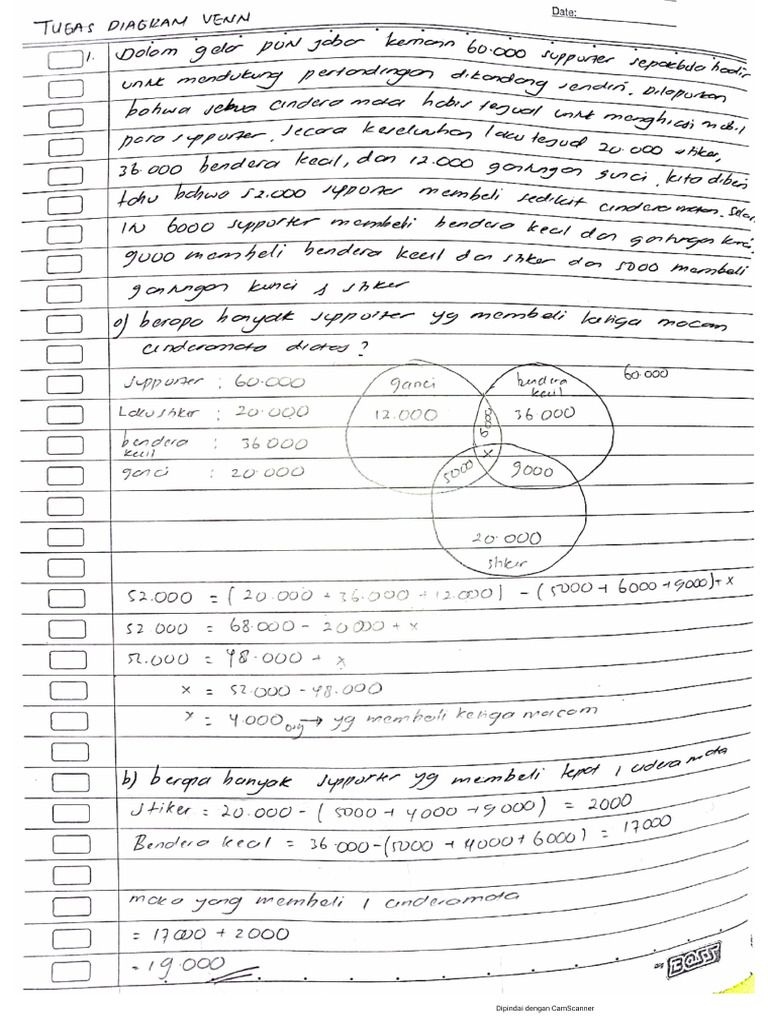 TUGAS DIAGRAM VENN
Date:
1. Dalam gelar PON jabar kemarin 60.000 supporter sepakbola hadir
untuk mendukung pertandingan dikandang sendiri. Dilaporkan
bahwa sebua cindera mata habis tegual untuk menghiasi mobil
para supporter. Secara keseluruhan laku tegual 20.000 stiker,
36.000 bendera kecil, dan 12.000 gantungan kunci. kita diberi
tahu bahwa 52.000 supporter membeli sedikit cindera mata. Selai
IN 6000 supporter membeli bendera kecil dan gantungan kunci,
9000 membeli bendera kecil dan stiker dan 5000 membeli
gantungan kunci & stiker
a) berapa banyak supporter yg membeli ketiga macam
cinderamata diatas?
supporter : 60.000
Laku stiker : 20.000
bendera kecil : 36 000
ganci : 20.000
ganci
12.000
bendera kecil
36 000
60.000
6000
x
5000
9000
20.000
stiker
52.000 = (20.000 + 36.000 + 12.000) - (5000 + 6000 + 9000) + x
52.000 = 68.000 - 20000 + x
52.000 = 48.000 + x
x = 52.000 - 48.000
x = 4.000 org → yg membeli ketiga macam
b) berapa banyak supporter yg membeli tepat 1 cidera mata
Stiker = 20.000 - (5000 + 4000 + 9000) = 2000
Bendera kecil = 36.000 - (5000 + 4000 + 6000) = 17000
maka yang membeli 1 cinderamata
= 17000 + 2000
= 19.000
BOSS
Dipindai dengan CamScanner